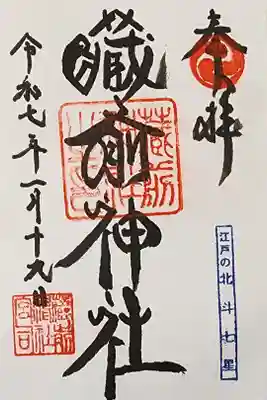 奉拝
江戸の北斗七星
蔵前神社
令和七年一月十九日